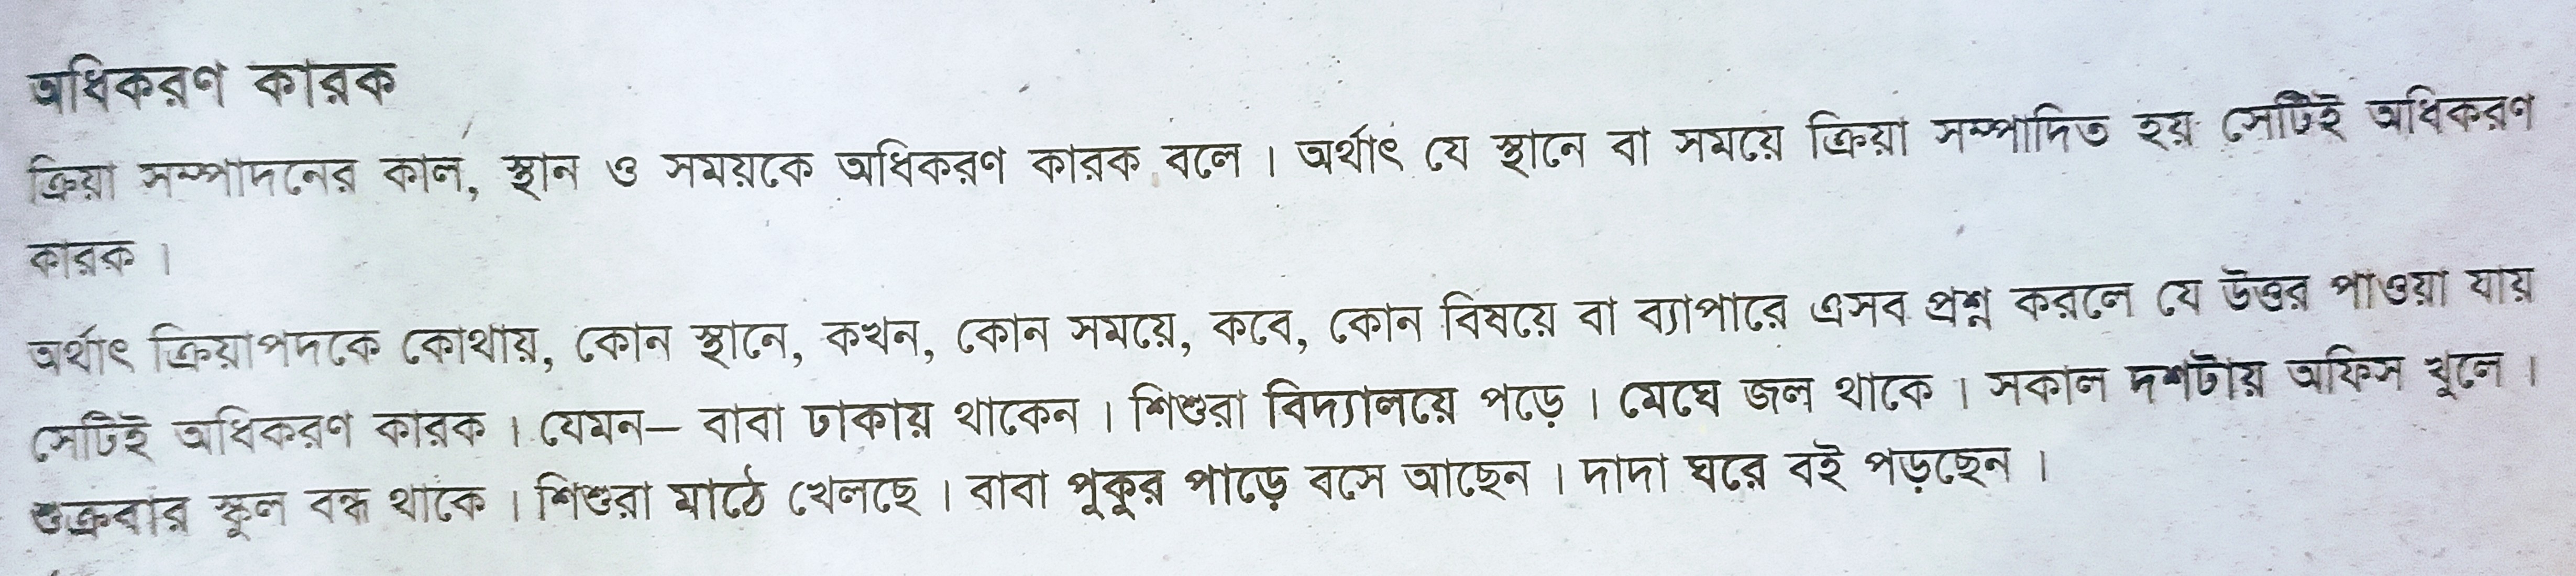 অধিকরণ কারক
ক্রিয়া সম্পাদনের কাল, স্থান ও সময়কে অধিকরণ কারক বলে । অর্থাৎ যে স্থানে বা সময়ে ক্রিয়া সম্পাদিত হয় সেটিই অধিকরণ
কারক ।
অর্থাৎ ক্রিয়াপদকে কোথায়, কোন স্থানে, কখন, কোন সময়ে, কবে, কোন বিষয়ে বা ব্যাপারে এসব প্রশ্ন করলে যে উত্তর পাওয়া যায়
সেটিই অধিকরণ কারক । যেমন— বাবা ঢাকায় থাকেন । শিশুরা বিদ্যালয়ে পড়ে । মেঘে জল থাকে । সকাল দশটায় অফিস খুলে ।
শুক্রবার স্কুল বন্ধ থাকে । শিশুরা মাঠে খেলছে । বাবা পুকুর পাড়ে বসে আছেন । দাদা ঘরে বই পড়ছেন ।